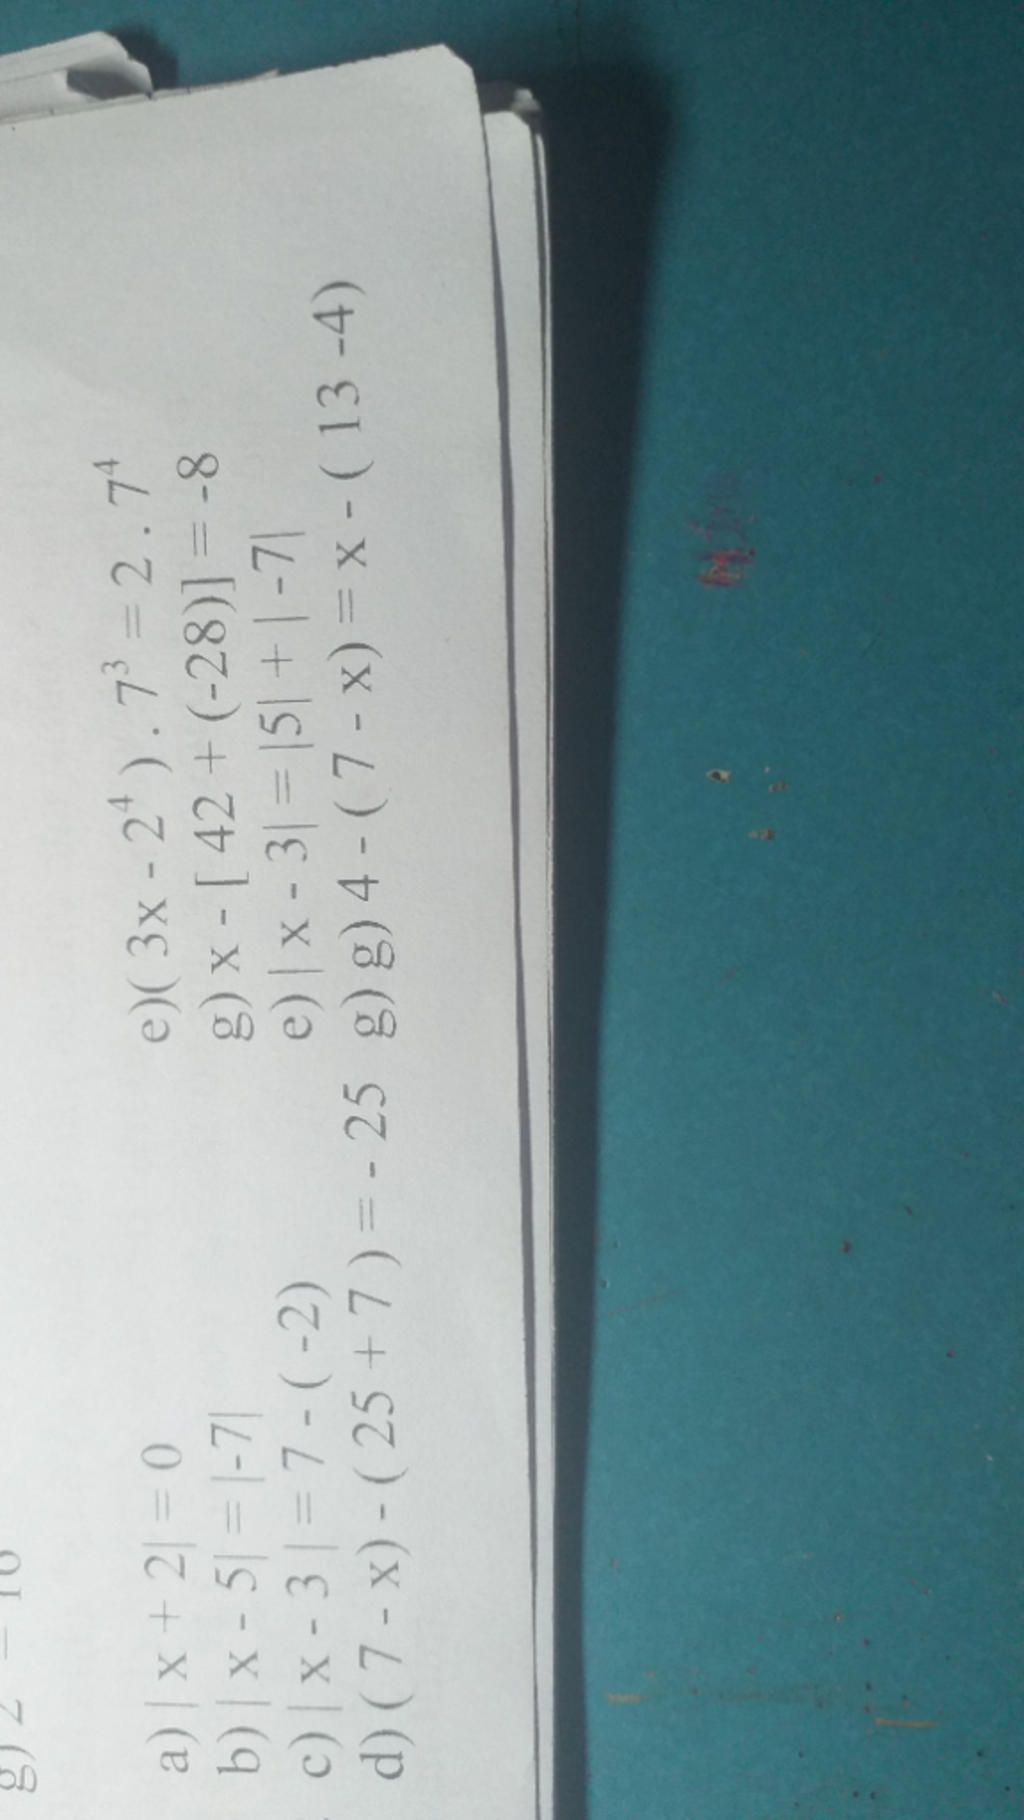 a) | x + 2| = 0 e)( 3x - 2⁴ ) . 7³ = 2 . 7⁴
b) | x - 5| = |-7| g) x - [ 42 + (-28)] = -8
c) | x - 3 | = 7 - ( -2) e) | x - 3| = |5| + | -7|
d) ( 7 - x) - ( 25 + 7 ) = - 25 g) g) 4 - ( 7 - x) = x - ( 13 -4)